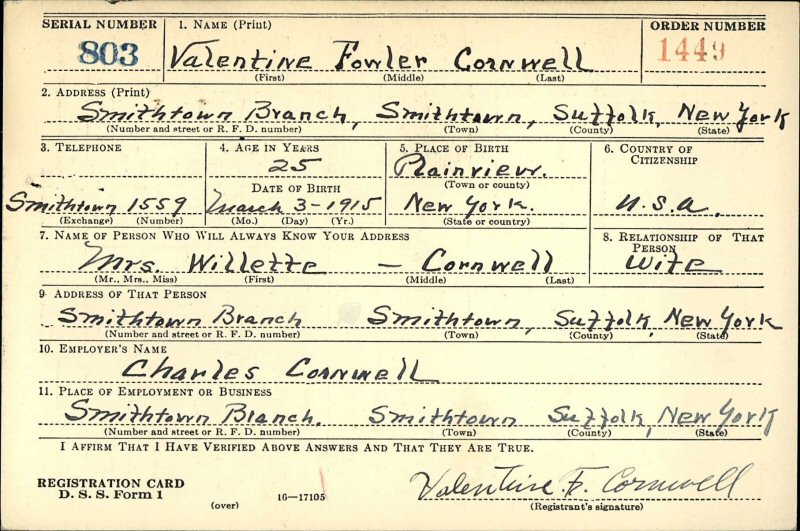 SERIAL NUMBER 1. NAME (Print) ORDER NUMBER
803 Valentine Fowler Cornwell 1449
(First) (Middle) (Last)
2. ADDRESS (Print)
Smithtown Branch, Smithtown, Suffolk, New York
(Number and street or R. F. D. number) (Town) (County) (State)
3. TELEPHONE 4. AGE IN YEARS 5. PLACE OF BIRTH 6. COUNTRY OF CITIZENSHIP
25 Plainview.
DATE OF BIRTH (Town or county)
Smithtown 1559 March 3-1915 New York. U.S.A.
(Exchange) (Number) (Mo.) (Day) (Yr.) (State or country)
7. NAME OF PERSON WHO WILL ALWAYS KNOW YOUR ADDRESS 8. RELATIONSHIP OF THAT PERSON
Mrs. Willette — Cornwell Wife
(Mr., Mrs., Miss) (First) (Middle) (Last)
9. ADDRESS OF THAT PERSON
Smithtown Branch Smithtown, Suffolk, New York
(Number and street or R. F. D. number) (Town) (County) (State)
10. EMPLOYER'S NAME
Charles Cornwell
11. PLACE OF EMPLOYMENT OR BUSINESS
Smithtown Branch. Smithtown Suffolk, New York
(Number and street or R. F. D. number) (Town) (County) (State)
I AFFIRM THAT I HAVE VERIFIED ABOVE ANSWERS AND THAT THEY ARE TRUE.
REGISTRATION CARD
D. S. S. Form 1 (over) 16—17105 Valentine F. Cornwell
(Registrant's signature)